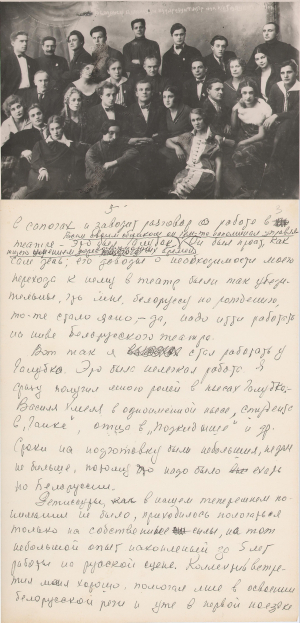 3-
в сапогах и заводит разговор о работе в
театре. Это был Голубок. Он был прост, как
его доводы о необходимости моего
перехода к нему в театр были так убеди-
тельны, что мне, белорусу по рождению,
то-же стало ясно, - да, надо идти работать
на ниве белорусского театра.
Вот так я стал работать у
Голубка. Это было нелегкая работа. Я
сразу получил много ролей в пьесах Голубка -
Василя Хмеля в одноименной пьесе, студента
в "Ганке", отца в "Подкидыше" и др.
Сроки на подготовку были небольшие, недели
не больше, потому что надо было ехать
по Белоруссии.
Репетиций, как в нашем теперешнем по-
нимании не было, приходилось полагаться
только на собственные силы, на тот
небольшой опыт накопленный за 5 лет
работы на русской сцене. Коллектив встре-
тил меня хорошо, помогал мне в освоении
белорусской речи и уже в первой поездке